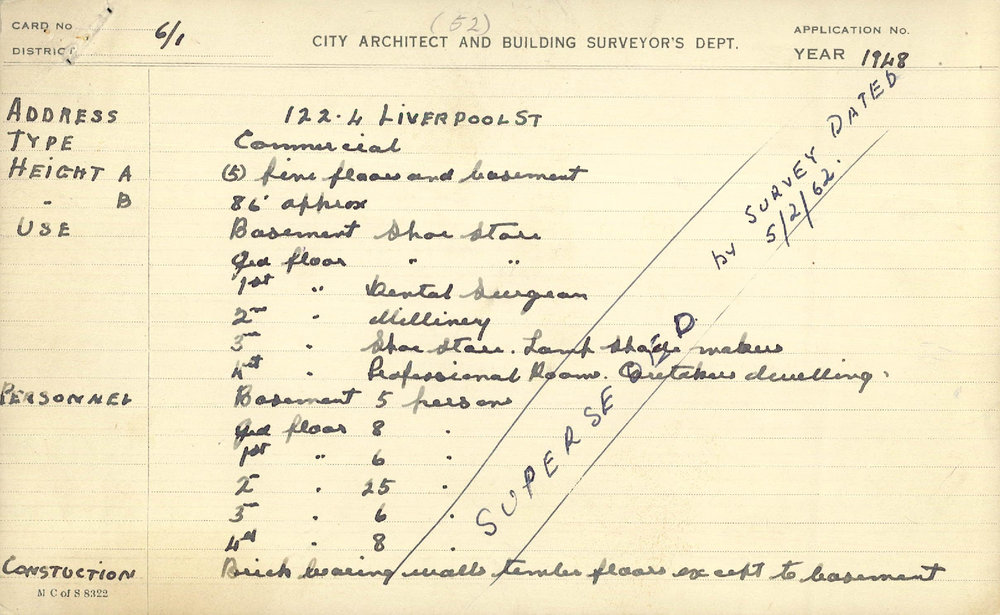 (52)
CARD No 6/1
DISTRICT
CITY ARCHITECT AND BUILDING SURVEYOR'S DEPT.
APPLICATION No.
YEAR 1948
ADDRESS 122.4 LIVERPOOL ST
TYPE Commercial
HEIGHT A (5) five floors and basement
" B 86' approx
USE Basement Shoe Store
Grd floor " "
1st " Dental Surgeon
2nd " Millinery
3rd " Shoe Store. Lamp Shade makers
4th " Professional Room. Caretakers dwelling.
PERSONNEL Basement 5 persons
Grd floor 8 "
1st " 6 "
2nd " 25 "
3rd " 6 "
4th " 8 "
CONSTUCTION Brick bearing walls timber floors except to basement
M C of S 8322
SUPERSEDED
by SURVEY DATED
5/2/62.